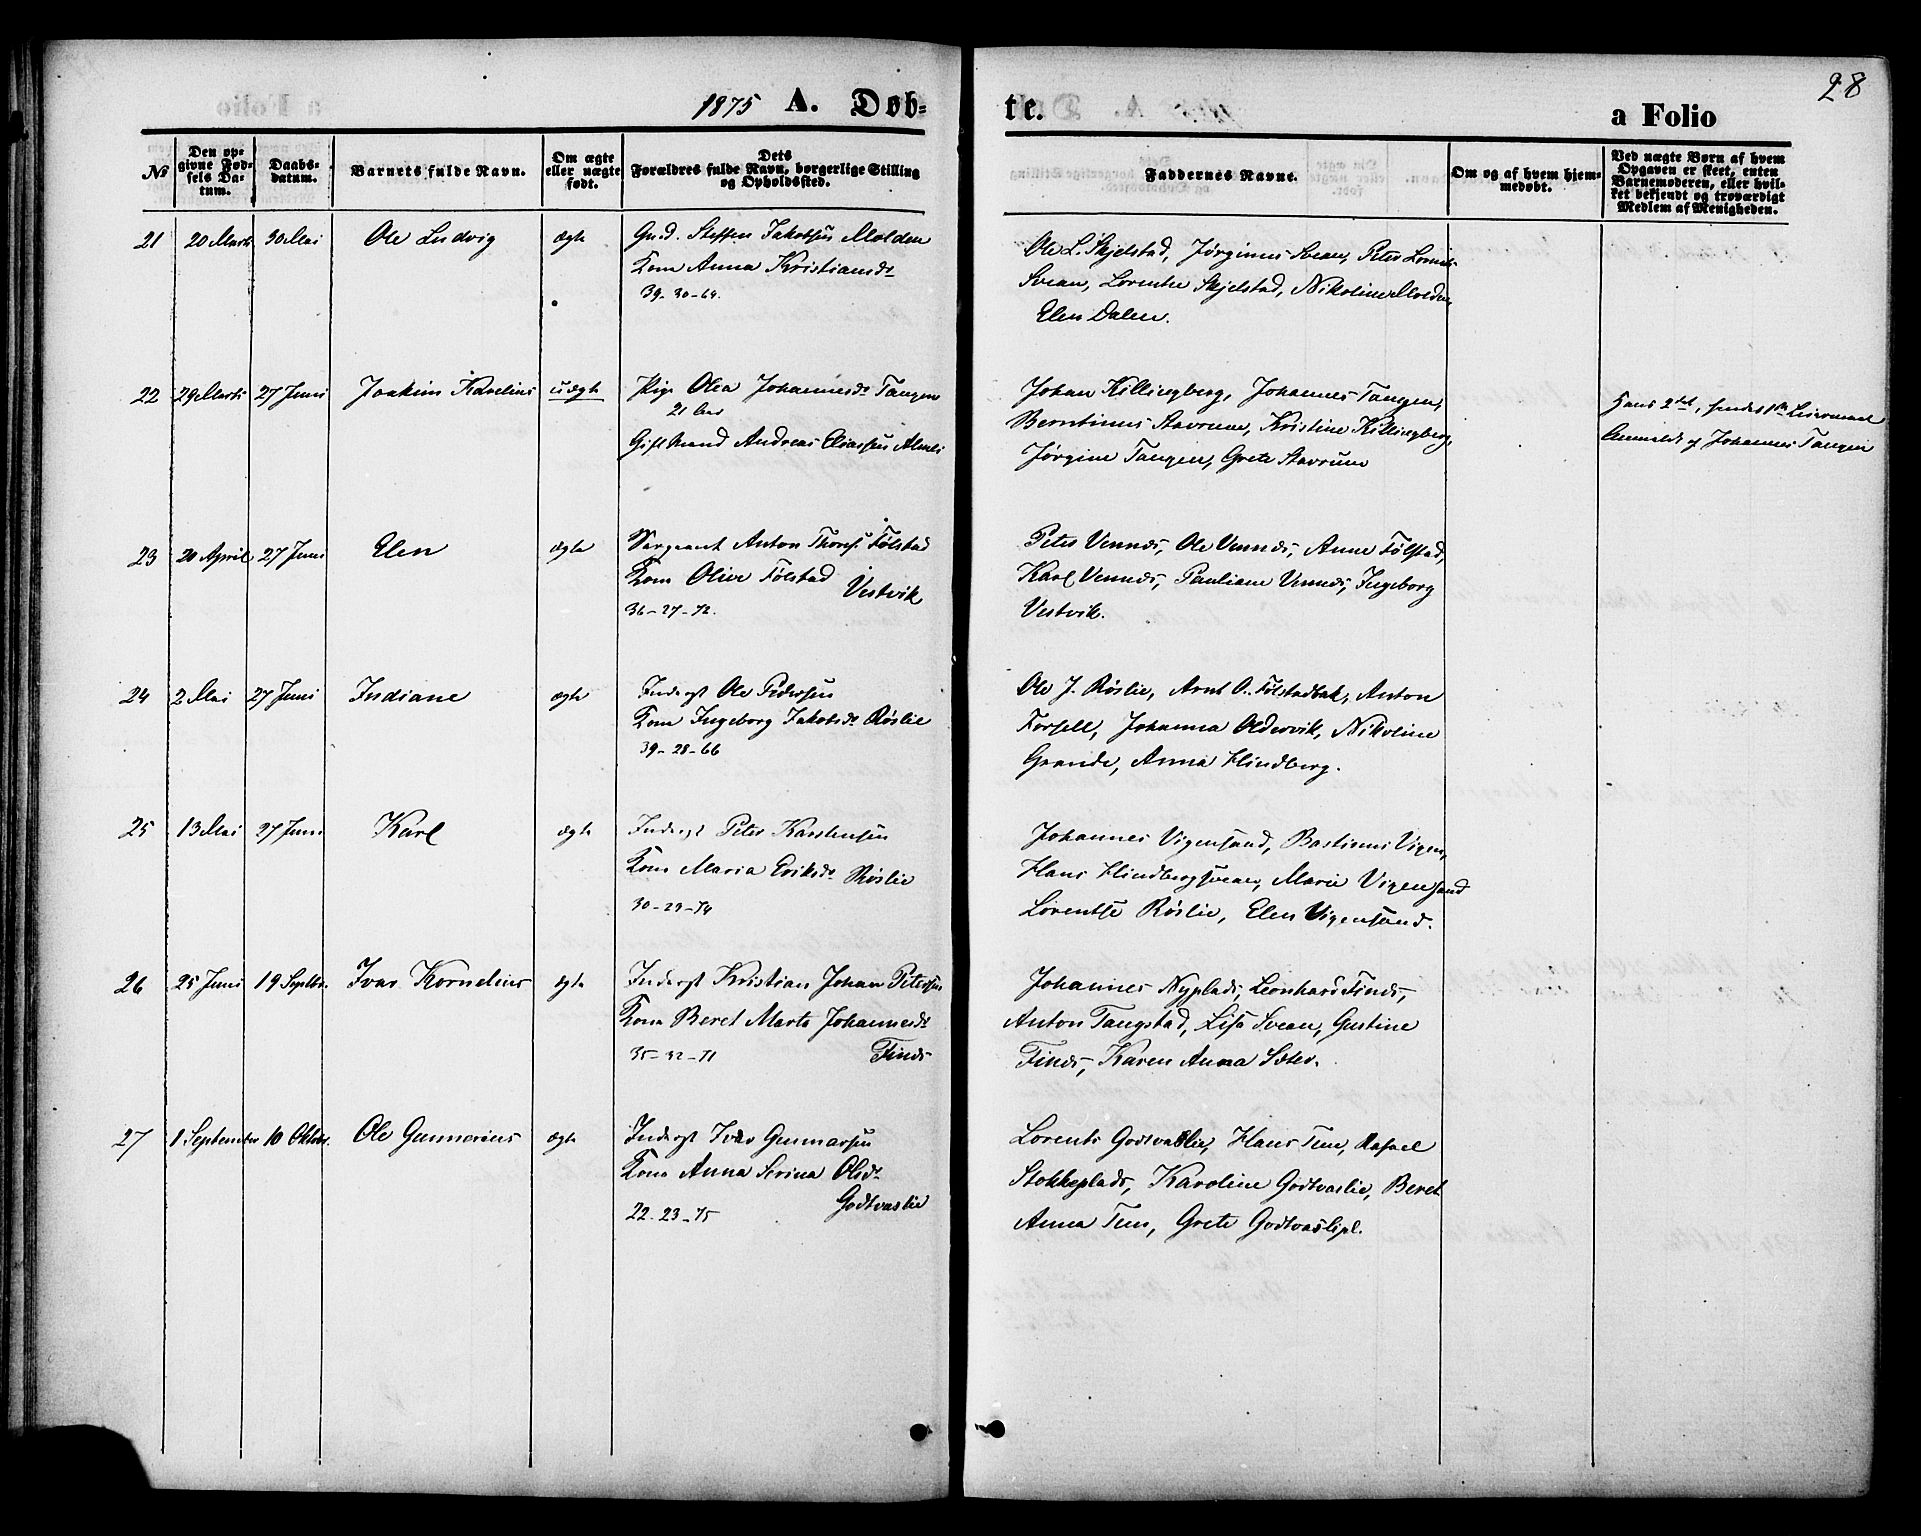 1875 A. Døb-
te.
28
a Folio
No
Den op-
givne Fød-
sels Da-
tum.
Daabs-
datum.
Barnets fulde Navn.
Om ægte
eller uægte
født.
Dets
Forældres fulde Navn, borgerlige Stilling
og Opholdssted.
Faddernes Navne.
Om og af hvem hjem-
medøbt.
Ved uægte Børn af hvem
Opgaven er skeet, enten
Barnemoderen, eller hvil-
ket bekjendt og troværdigt
Medlem af Menigheden.
21 20 Marts 30 Mai Ole Ludvig ægte Gmd. Steffen Jakobsen Molden
Kone Anna Kristiansdr
39-30-69.
Ole L. Skjelstad, Jørginus Svean, Peter Lorents
Svean, Lorentse Skjelstad, Nikoline Molden,
Elen Dalen.
22 29 Marts 27 Juni Joakim Karelius uægte Pige Olea Johannesdr Tangen
21 Aar
Gift Mand Andreas Eliassen Almli
Johan Killingberg, Johannes Tangen,
Berntinus Stavrum, Kristine Killingberg,
Jørgine Tangen, Grete Stavrum
Hans 2det, hendes 1ste Leiermaal
Anmeldt af Johannes Tangen
23 20 April 27 Juni Elen ægte Sergeant Anton Thoms. Følstad
Kone Olive Følstad
Vestvik
36-27-72.
Peter Vennes, Ole Vennes, Anne Følstad,
Karl Vennes, Pauliane Vennes, Ingeborg
Vestvik.
24 2 Mai 27 Juni Indiane ægte Inderst Ole Pedersen
Kone Ingeborg Jakobsdr Røslie
39-28-66
Ole J. Røslie, Arnt O. Følstadbak, Anton
Forsell, Johanna Oldervik, Nikoline
Grande, Anna Hindberg.
25 13 Mai 27 Juni Karl ægte Inderst Peter Karstensen
Kone Maria Eriksdr Røslie
30-29-74
Johannes Vigensand, Bastinus Vigen,
Hans Hindbergsvean, Marie Vigensand
Lorentse Røslie, Elen Vigensand.
26 25 Juni 19 Septbr. Ivar Kornelius ægte Inderst Kristian Johan Petersen
Kone Beret Marta Johannesdr
35-32-71 Finds
Johannes Nyplads, Leonhard Finds,
Anton Tangstad, Lisa Svean, Gustine
Finds, Karen Anna Sæter.
27 1 September 10 Oktbr. Ole Gunnerius ægte Inderst Ivar Gunnarsen
Kone Anna Serina Olsdr
22-23-75 Godtvaslie
Lorents Godtvaslie, Hans Tem, Rafael
Stokkeplads, Karoline Godtvaslie, Beret
Anna Tem, Grete Godtvaslipl.